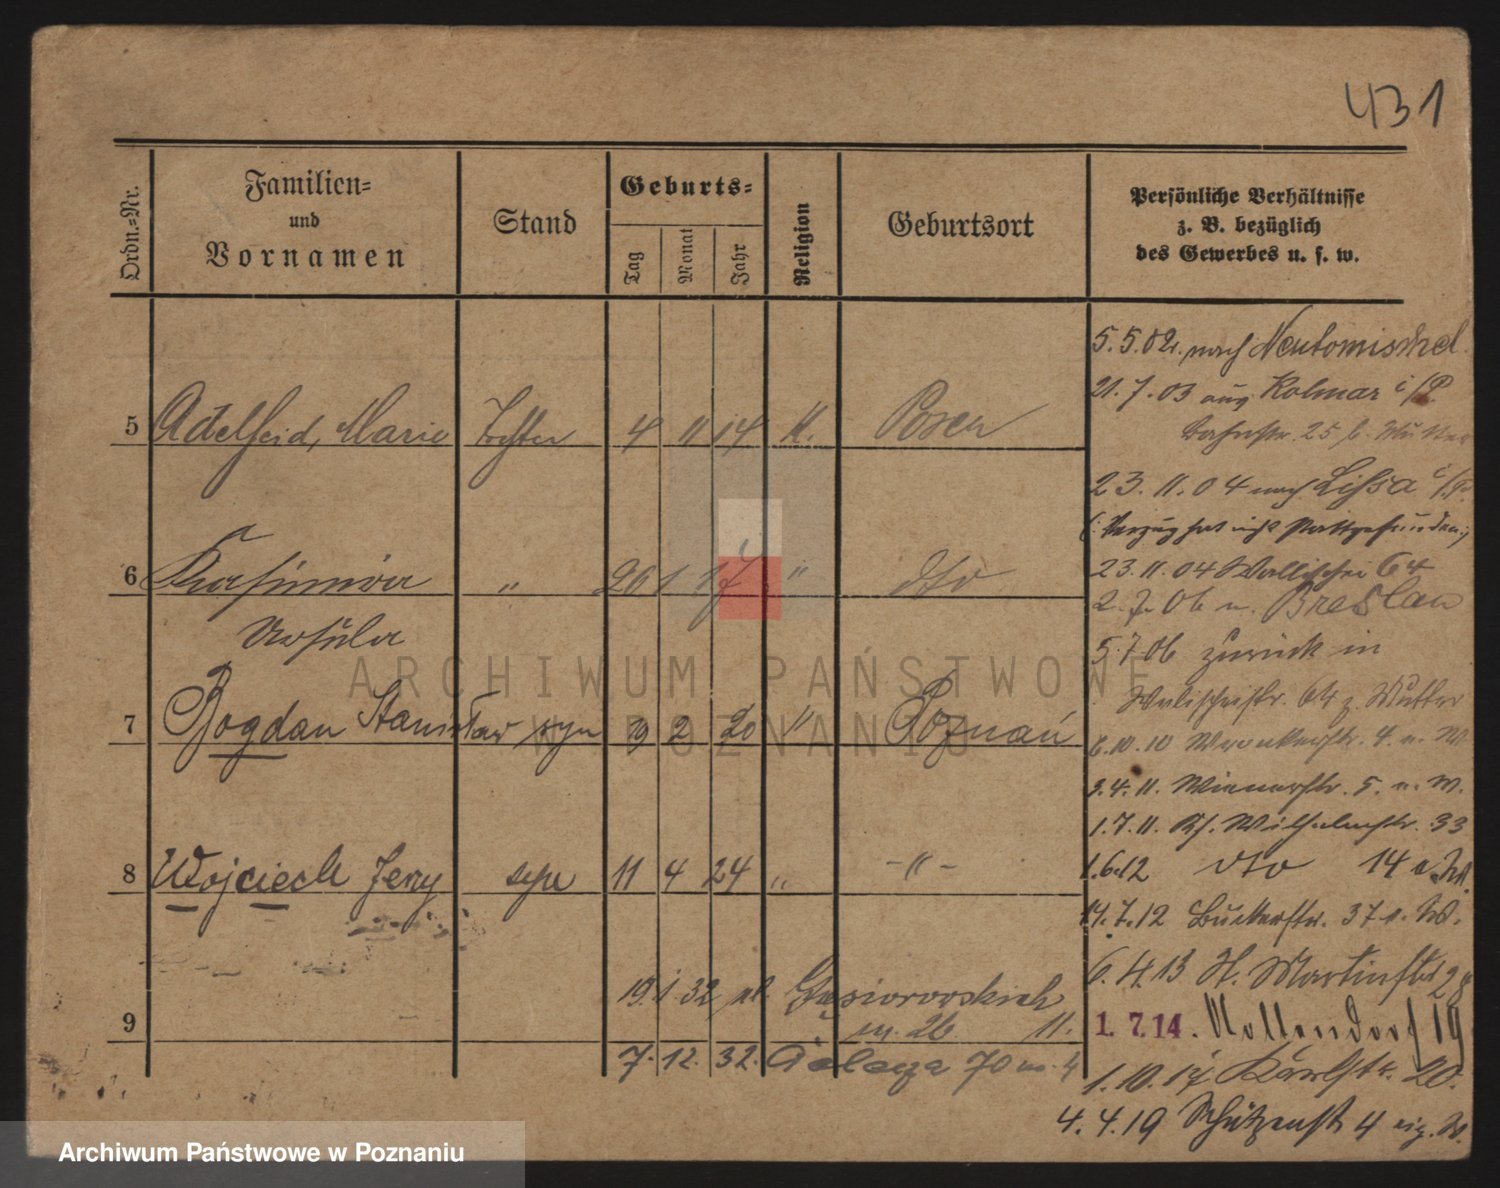 431
Ordn.-Nr.
Familien-
und
Vornamen
Stand
Geburts-
Tag
Monat
Jahr
Religion
Geburtsort
Persönliche Verhältnisse
z. B. bezüglich
des Gewerbes u. s. w.
5 Adelheid, Marie Tochter 4 11 14 K. Posen
6 Kasimira " 26 1 17 " dto
Ursula
7 Bogdan Stanisław syn 19 2 20 " Poznań
8 Wojciech Jerzy syn 11 4 24 " -"-
9
19. 1. 32 pl. Gąsiorowskich
m. 26. 11.
7. 12. 32. 70 m. 4
5.5.02. nach Neutomischel
21.7.03 aus Kolmar i/P.
25 b. Mutter
23.11.04 nach Lissa i/P.
(: Verzug hat nicht stattgefunden :)
23.11.04 Wallischei 64
2.7.06 n. Breslau
5.7.06 zurück in
Wallischeistr. 64 z. Mutter
6.10.10 Wronkerstr. 4. e. W
3.4.11. Wienerstr. 5. e. W.
1.7.11. Kg. Wilhelmstr. 33
1.6.12 dto 14 e. W.
14.7.12 Bukerstr. 37 e. W.
6.4.13 St. Martinstr 28
1. 7. 14. Nollendorf 19
1.10.17 Karlstr. 20.
4.4.19 Schützenstr 4 eig. W.
ARCHIWUM PAŃSTWOWE
W POZNANIU
Archiwum Państwowe w Poznaniu